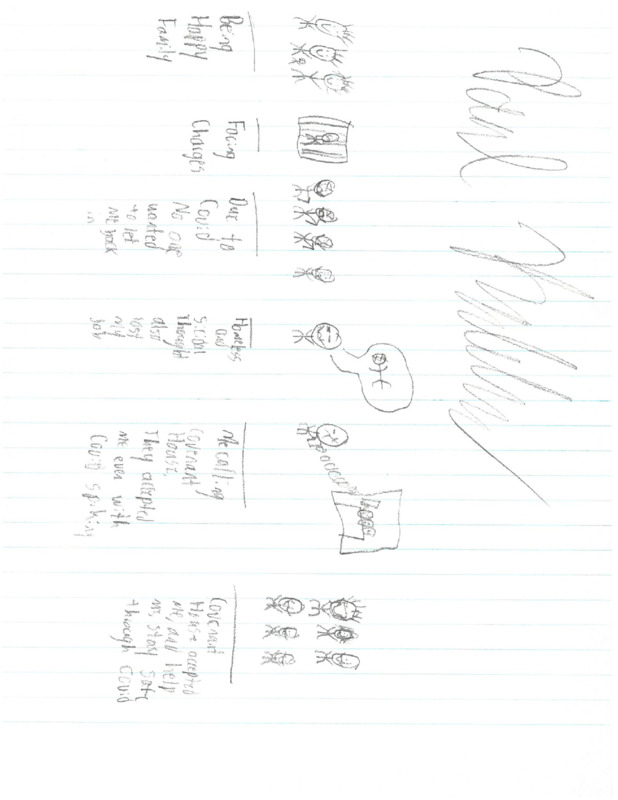 Being
Happy
Family
Facing
Charges
Due to
Covid
No one
wanted
to let
me back
in
Homeless
and
thought
also
lost
my
Me calling
Covenant
House,
They accepted
me even with
Covid spiking
Covenant
House accepted
me, and help
me stay safe
through Covid